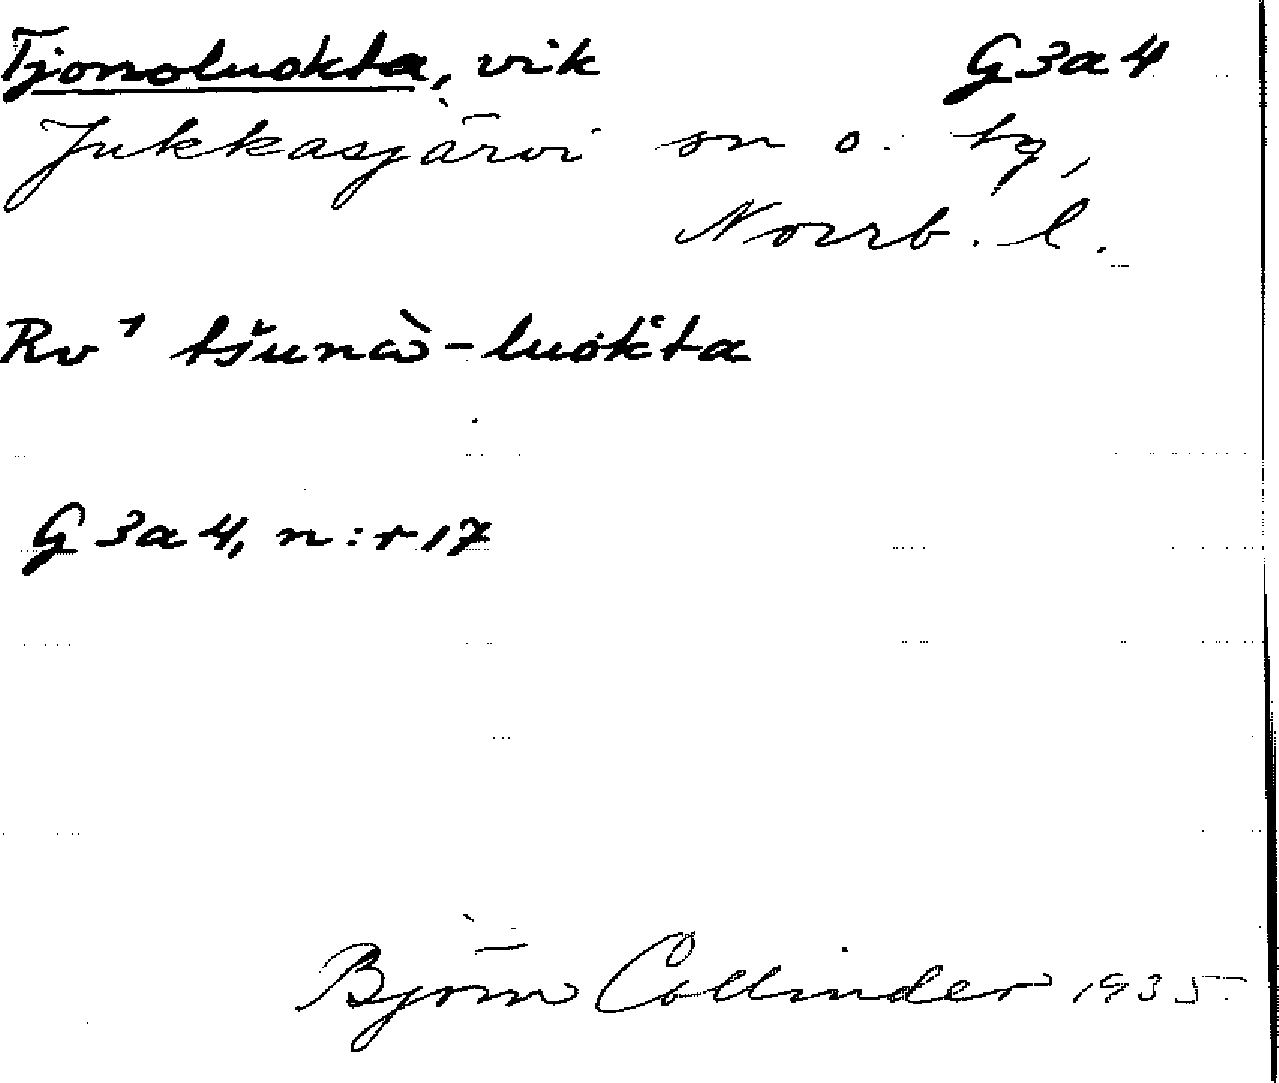 Tjonoluokta, vik G3a4
Jukkasjärvi sn o. tg,
Norrb. l.
Rv¹ tšunὰ̀-luok̀ta
G3a4, n:r 17
Björn Collinder 1935